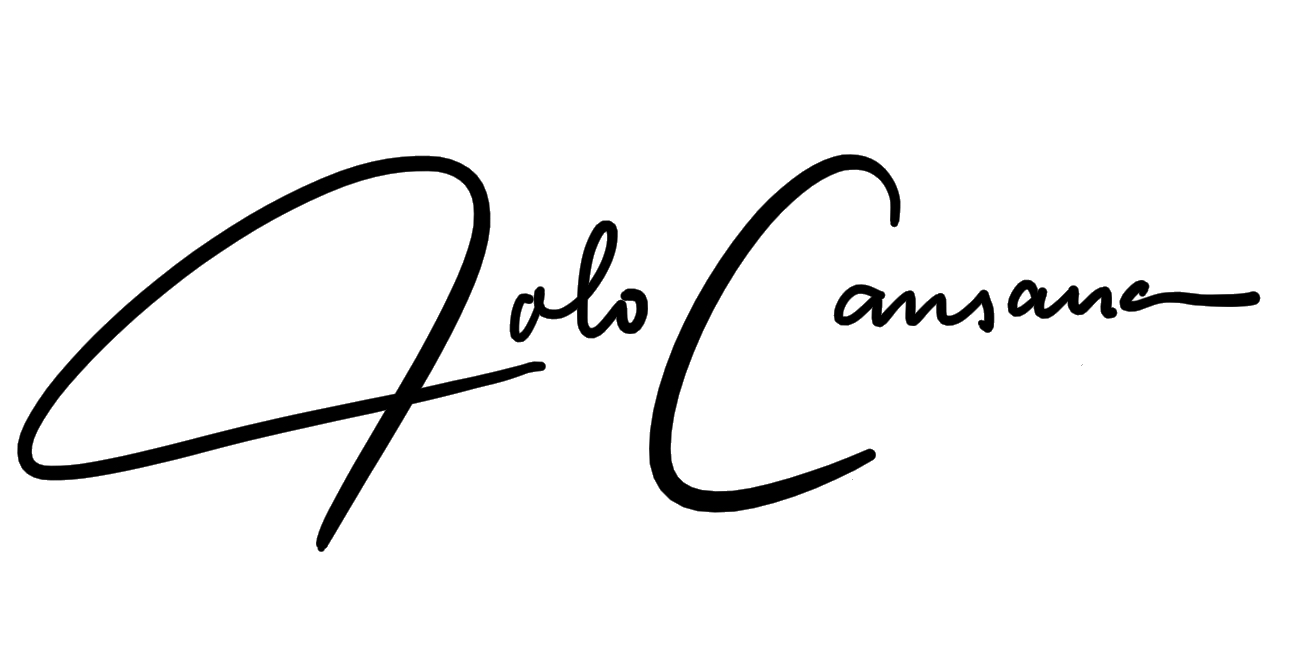 Jolo Cansana